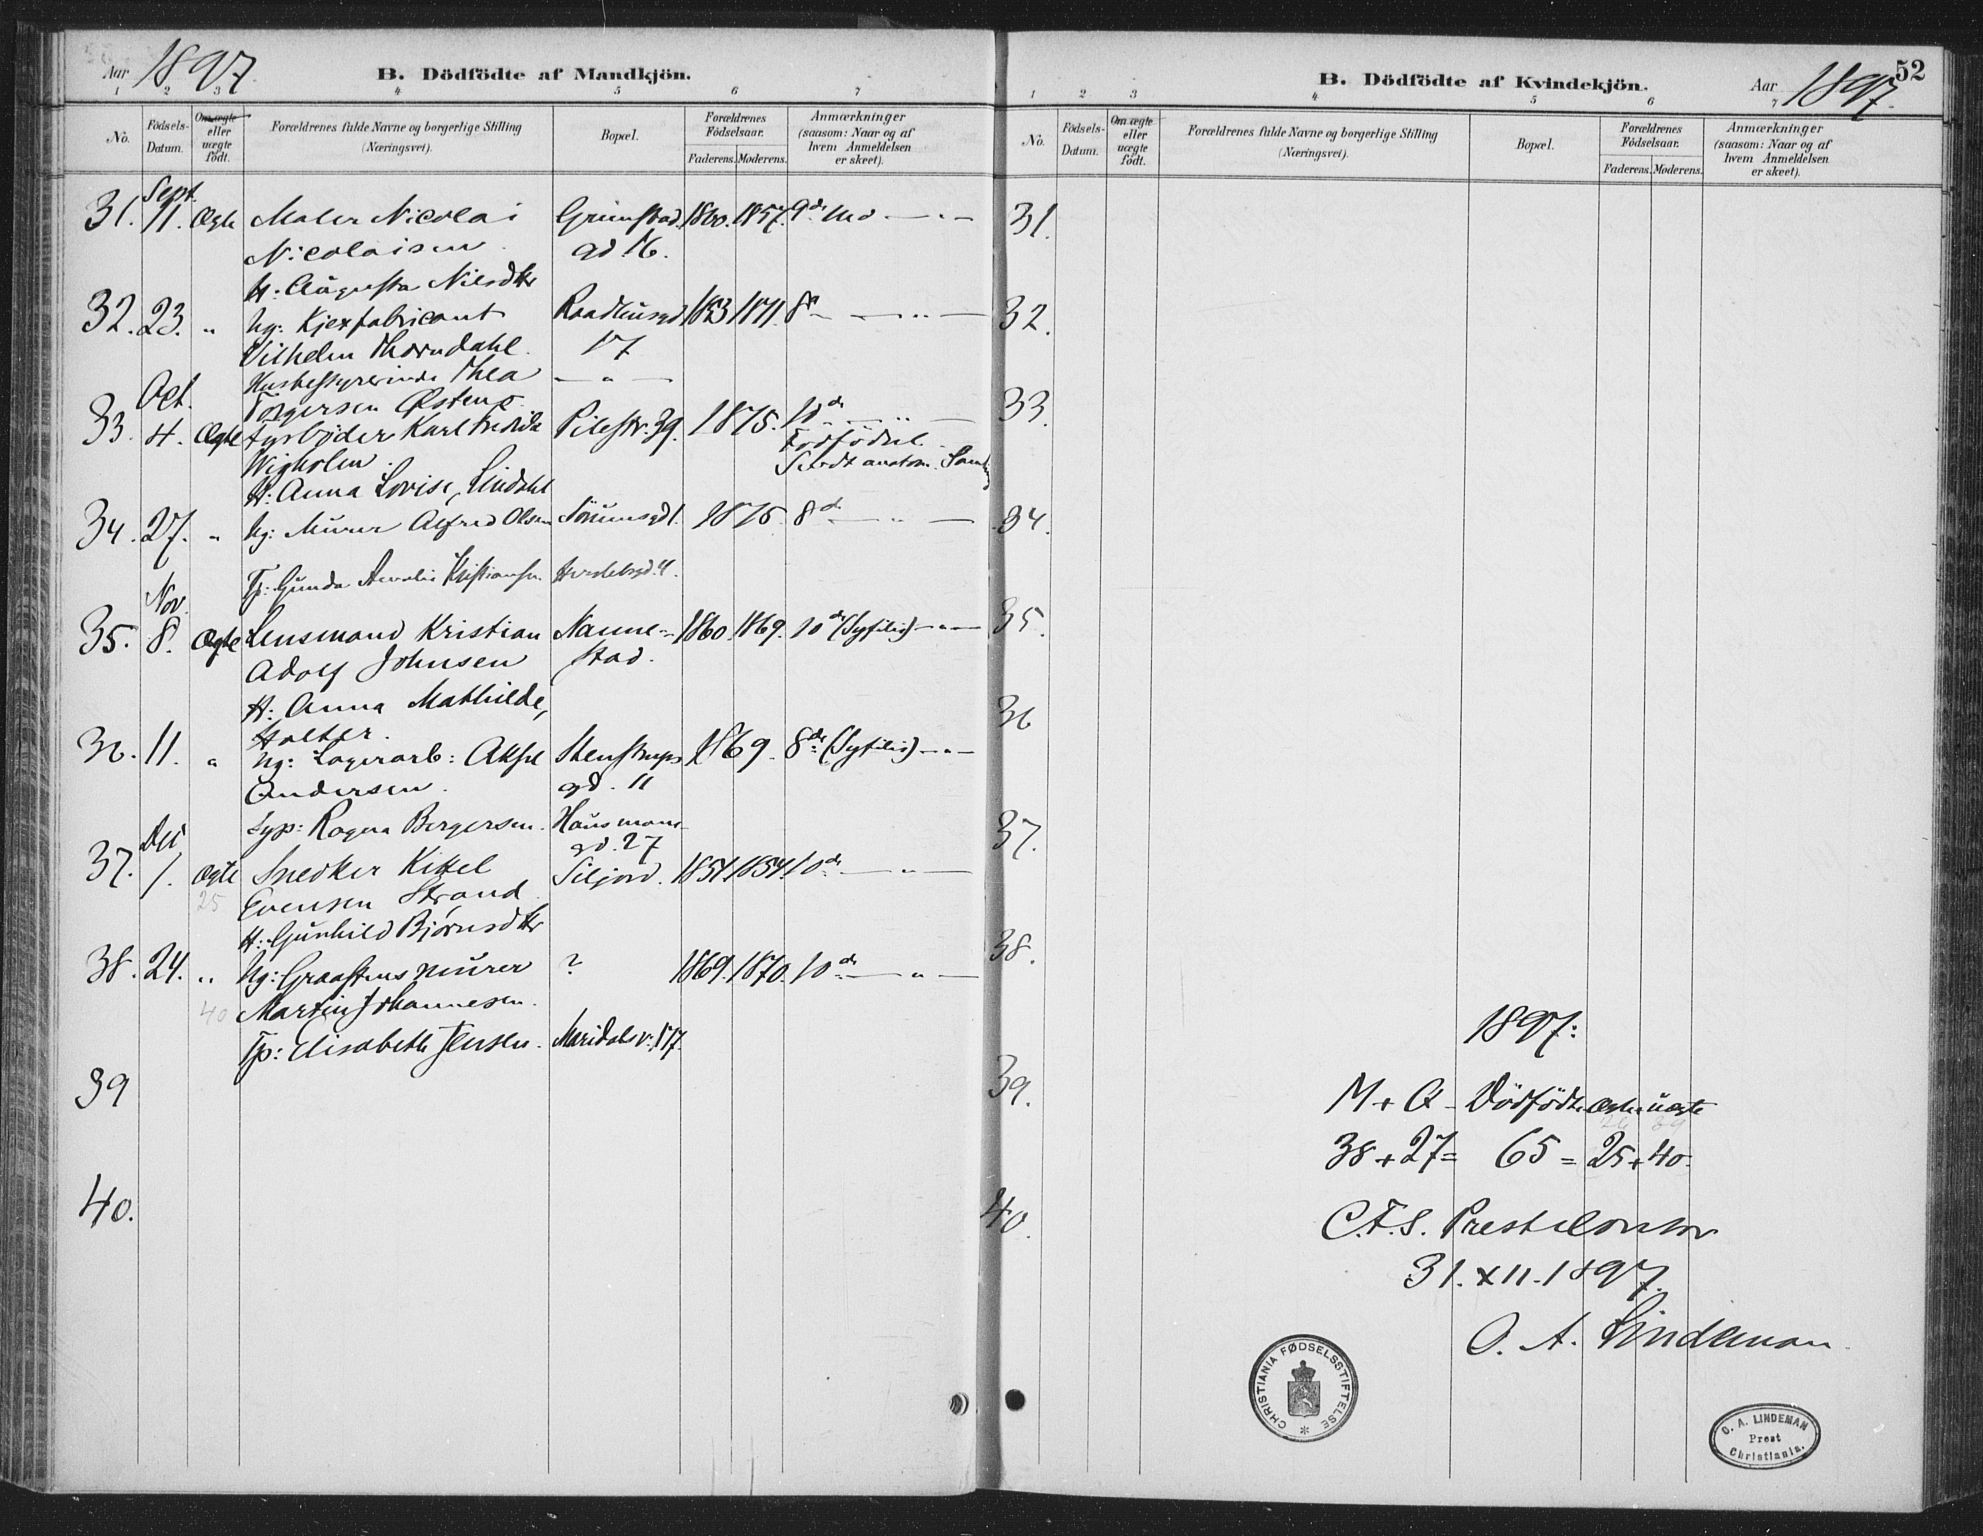 Aar 1897.
B. Dödfödte af Mandkjön.
1 2 3 4 5 6 7
No.
Födsels-Datum.
Om ægte eller uægte födt.
Forældrenes fulde Navne og borgerlige Stilling (Næringsvei).
Bopæl.
Forældrenes Födselsaar.
Faderens. Moderens.
Anmærkninger (saasom: Naar og af hvem Anmeldelsen er skeet).
Sept.
31. 11. Ægte Maler Nicolai Grimstad 1860. 1857. 9de Md — " —
Nicolaisen gd. 16.
H: Augusta Nilsdtr
32. 23. " Ug: Kjexfabricant Raadhusgd 1853 1871. 8de — " —
Vilhelm Thorndahl. 17
Husbestyrerinde Thea — " —
Oct. Torgersen Østeng
33. 4. Ægte Fyrbøder Karl Fredrik Pilestr. 39. 1875. 10de — " —
Wigholm. Fodfödsel.
H: Anna Lovise Lindahl
34. 27. " Ug: Murer Alfred Olsen Sörumsgd 1. 1875 8de — " —
Tp: Gunda Amalie Kristiansen
Nov.
35. 8. Ægte Lensmand Kristian Nanne- 1860. 1869. 10de (Syfilis) — " —
Adolf Johnsen stad.
H: Anna Mathilde,
Holter.
36. 11. " Ug: Lagerarb: Aksel Stenstrups 1869. 8de (Syfilis) — " —
Andersen. gd. 11
Syp: Ragna Bergersen. Hausmans
Dec gd. 27
37. 1. Ægte Snedker Kittel Siljord. 1854. 1854. 10de — " —
25 Evensen Strand
H: Gunhild Bjørnsdtr
38. 24. " Ug: Graastensmurer ? 1869. 1870. 10de — " —
40 Martin Johannesen.
Tp: Elisabeth Jensen. Maridalsv: 177.
39
40.
B. Dödfödte af Kvindekjön.
Aar 1897.
52
1 2 3 4 5 6 7
No.
Födsels-Datum.
Om ægte eller uægte födt.
Forældrenes fulde Navne og borgerlige Stilling (Næringsvei).
Bopæl.
Forældrenes Födselsaar.
Faderens. Moderens.
Anmærkninger (saasom: Naar og af hvem Anmeldelsen er skeet).
31.
32.
33.
34.
35.
36
37.
38.
39.
40.
1897:
M + Q - Dödfödte ægte uægte
38 + 27 = 65 = 25 + 40.
C.F.S. Prestekontor
31. XII. 1897.
O. A. Lindeman.
CHRISTIANIA FØDSELSSTIFTELSE
O. A. LINDEMAN
Prest
Christiania.